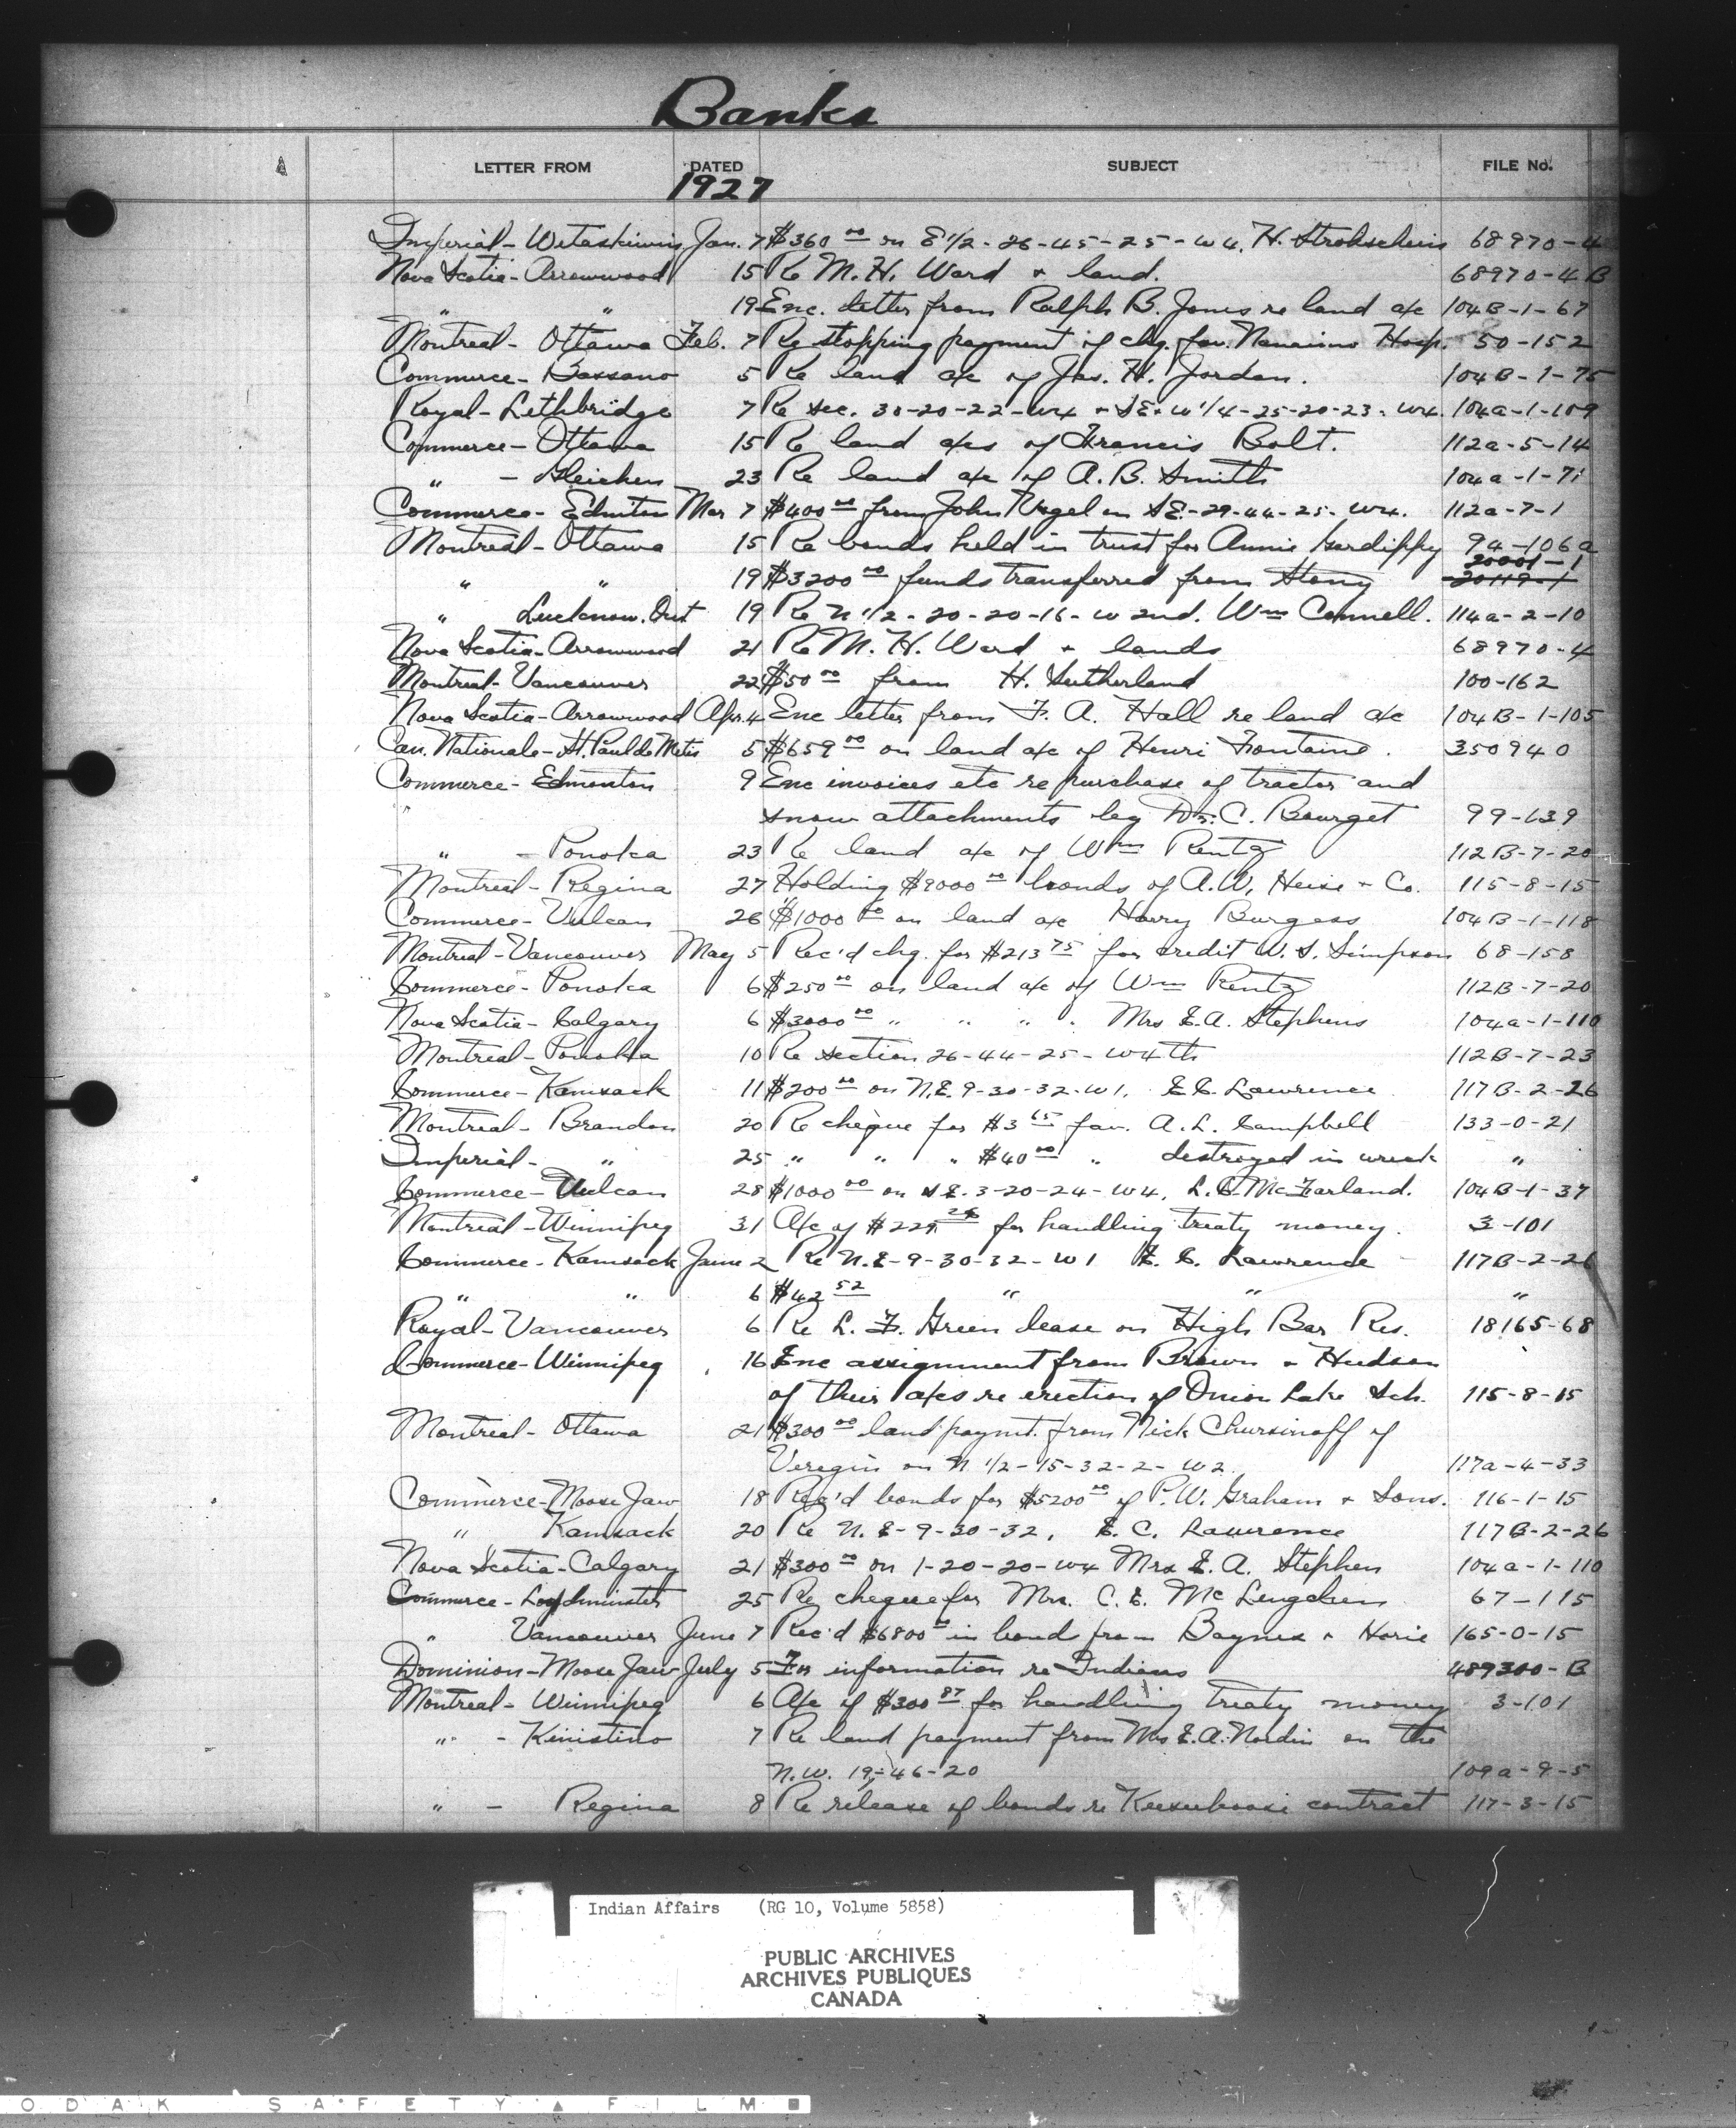 Banks
LETTER FROM DATED SUBJECT FILE No.
1927
Imperial - Wetaskiwin Jan. 7 $360 00 on E 1/2 - 26-45-25-W4. H. Strohschein 68970-4
Nova Scotia - Arrowwood 15 Re M. H. Ward + land. 68970-4B
" " 19 Enc. letter from Ralph B. Jones re land a/c 104B-1-67
Montreal - Ottawa Feb. 7 Re stopping payment of chq. fav. Nanaimo Hosp. 50-152
Commerce - Bassano 5 Re land a/c of Jas. H. Jordan. 104B-1-75
Royal - Lethbridge 7 Re sec. 30-20-22-W4 + SE + W 1/4-25-20-23-W4. 104a-1-109
Commerce - Ottawa 15 Re land a/cs of Francis Bolt. 112a-5-14
" - Gleichen 23 Re land a/c of A. B. Smith 104a-1-71
Commerce - Edmton Mar 7 $400 00 from John Vogel on SE.-29-44-25-W4. 112a-7-1
Montreal - Ottawa 15 Re bonds held in trust for Annie 94-106a
20001-1
" " 19 $3200 00 funds transferred from Stony 20119-1
" Lucknow. Ont 19 Re N 1/2 - 20-20-16-W 2nd. Wm Connell. 114a-2-10
Nova Scotia - Arrowwood 21 Re M. H. Ward + lands 68970-4
Montreal - Vancouver 22 $50 00 from H. Sutherland 100-162
Nova Scotia - Arrowwood Apr. 4 Enc letter from F. A. Hall re land a/c 104B-1-105
Can. Nationale - St. Paul de Metis 5 $659 00 on land a/c of Henri Fontaine. 350940
Commerce - Edmonton 9 Enc invoices etc re purchase of tractor and
" snow attachments by Dr. C. Bourget 99-139
" - Ponoka 23 Re land a/c of Wm Rentz 112B-7-20
Montreal - Regina 27 Holding $9000 00 bonds of A. W. Heise + Co. 115-8-15
Commerce - Vulcan 26 $1000 00 on land a/c Harry Burgess 104B-1-118
Montreal - Vancouver May 5 Rec'd chq. for $213 75 for credit W. S. Simpson 68-158
Commerce - Ponoka 6 $250 00 on land a/c of Wm Rentz 112B-7-20
Nova Scotia - Calgary 6 $3000 00 " " " " Mrs E. A. Stephens 104a-1-110
Montreal - Ponoka 10 Re section 26-44-25-W4th 112B-7-23
Commerce - Kamsack 11 $200 00 on N.E. 9-30-32-W1. E. C. Lawrence 117B-2-26
Montreal - Brandon 20 Re cheque for $3 65 fav. A. L. Campbell 133-0-21
Imperial - " 25 " " " $40 00 " destroyed in wreck "
Commerce - Vulcan 28 $1000 00 on S.E. 3-20-24-W4. L. C. McFarland. 104B-1-37
Montreal - Winnipeg 31 A/c of $229 26 for handling treaty money. 3-101
Commerce - Kamsack June 2 Re N.E-9-30-32-W1 E. C. Lawrence 117B-2-26
" " 6 $42 52 " " "
Royal - Vancouver 6 Re L. F. Green lease on High Bar Res. 18165-68
Commerce - Winnipeg 16 Enc assignment from Brown + Hudson
of their a/cs re erection of Onion Lake Sch. 115-8-15
Montreal - Ottawa 21 $300 00 land paymt. from Nick Chursinoff of
Veregin on N 1/2-15-32-2-W2. 117a-4-33
Commerce - Moose Jaw 18 Rec'd bonds for $5200 00 of P. W. Graham + Sons. 116-1-15
" Kamsack 20 Re N.E-9-30-32, E. C. Lawrence 117B-2-26
Nova Scotia - Calgary 21 $300 00 on 1-20-20-W4 Mrs E. A. Stephen 104a-1-110
Commerce - Loydminster 25 Re cheque for Mrs. C. E. 67-115
" Vancouver June 7 Rec'd $6800 00 in bonds from Baynes + Horie 165-0-15
Dominion - Moose Jaw July 5 For information re Indians 489300-B
Montreal - Winnipeg 6 A/c of $300 87 for handling treaty money 3-101
" - Kinistino 7 Re land payment from Mrs E. A. Nordin on the
N.W. 19-46-20 109a-9-5
" - Regina 8 Re release of bonds re Keeseekoose contract 117-3-15
Indian Affairs (RG 10, Volume 5858)
PUBLIC ARCHIVES
ARCHIVES PUBLIQUES
CANADA
ODAK SAFETY FILM